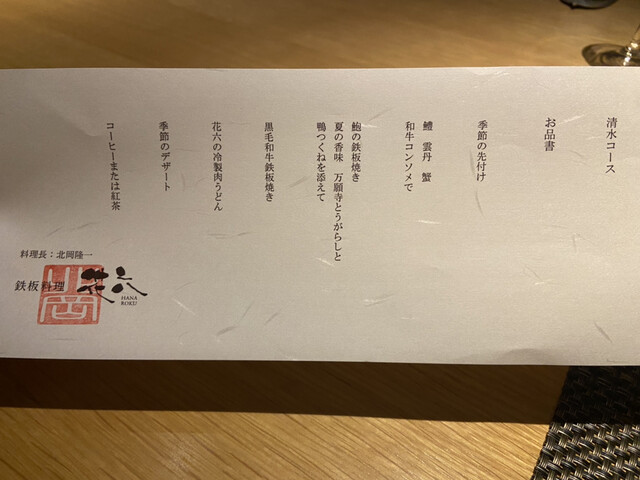 清水コース
お品書
季節の先付け
鱧 雲丹 蟹
和牛コンソメで
鮑の鉄板焼き
夏の香味 万願寺とうがらしと
鴨つくねを添えて
黒毛和牛鉄板焼き
花六の冷製肉うどん
季節のデザート
コーヒーまたは紅茶
料理長：北岡隆一
鉄板料理 花六
HANA
ROKU